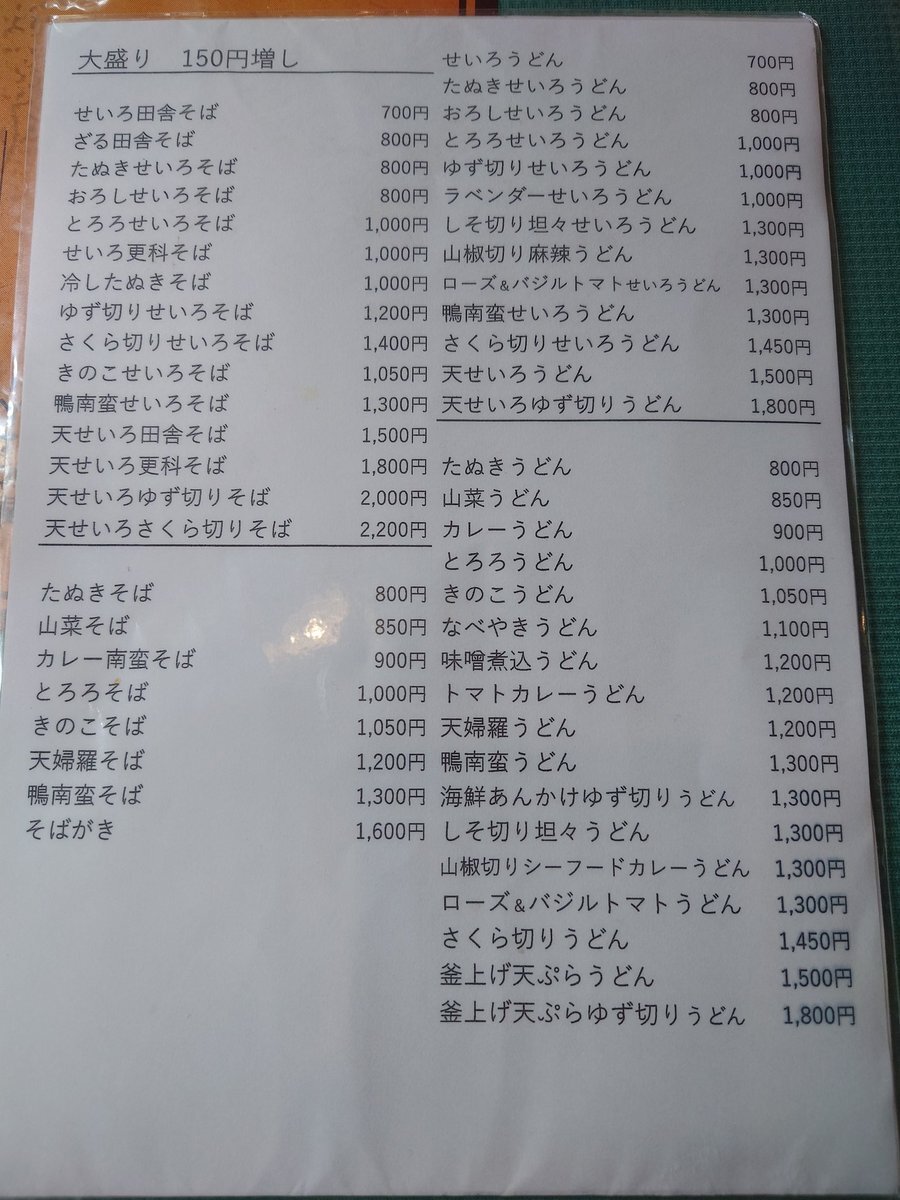 大盛り 150円増し
せいろ田舎そば 700円
ざる田舎そば 800円
たぬきせいろそば 800円
おろしせいろそば 800円
とろろせいろそば 1,000円
せいろ更科そば 1,000円
冷したぬきそば 1,000円
ゆず切りせいろそば 1,200円
さくら切りせいろそば 1,400円
きのこせいろそば 1,050円
鴨南蛮せいろそば 1,300円
天せいろ田舎そば 1,500円
天せいろ更科そば 1,800円
天せいろゆず切りそば 2,000円
天せいろさくら切りそば 2,200円
たぬきそば 800円
山菜そば 850円
カレー南蛮そば 900円
とろろそば 1,000円
きのこそば 1,050円
天婦羅そば 1,200円
鴨南蛮そば 1,300円
そばがき 1,600円
せいろうどん 700円
たぬきせいろうどん 800円
おろしせいろうどん 800円
とろろせいろうどん 1,000円
ゆず切りせいろうどん 1,000円
ラベンダーせいろうどん 1,000円
しそ切り坦々せいろうどん 1,300円
山椒切り麻辣うどん 1,300円
ローズ&バジルトマトせいろうどん 1,300円
鴨南蛮せいろうどん 1,300円
さくら切りせいろうどん 1,450円
天せいろうどん 1,500円
天せいろゆず切りうどん 1,800円
たぬきうどん 800円
山菜うどん 850円
カレーうどん 900円
とろろうどん 1,000円
きのこうどん 1,050円
なべやきうどん 1,100円
味噌煮込うどん 1,200円
トマトカレーうどん 1,200円
天婦羅うどん 1,200円
鴨南蛮うどん 1,300円
海鮮あんかけゆず切りうどん 1,300円
しそ切り坦々うどん 1,300円
山椒切りシーフードカレーうどん 1,300円
ローズ&バジルトマトうどん 1,300円
さくら切りうどん 1,450円
釜上げ天ぷらうどん 1,500円
釜上げ天ぷらゆず切りうどん 1,800円